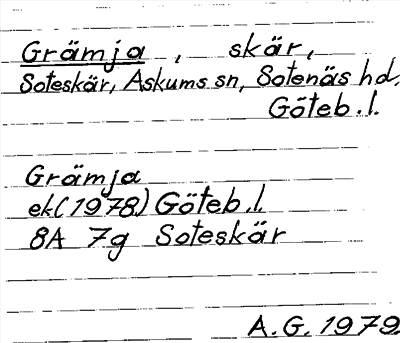 Grämja, skär,
Soteskär, Askums sn, Sotenäs hd.
Göteb.l.
Grämja
ek(1978) Göteb.l.
8A 7g Soteskär
A.G. 1979